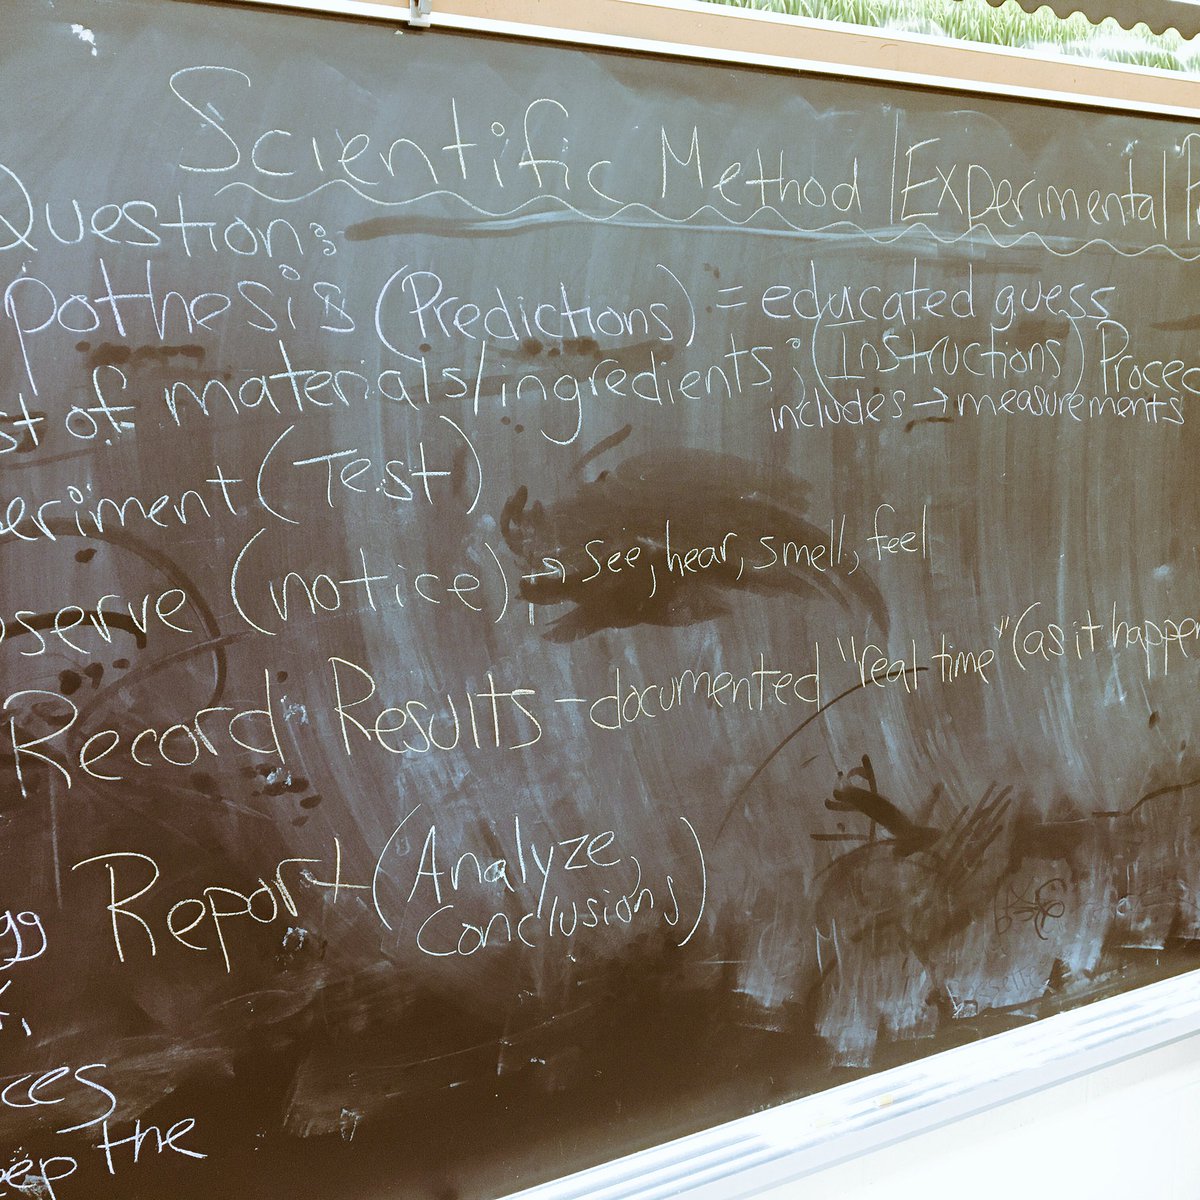 Scientific Method / Experimental P
Question:
pothesis (Predictions) = educated guess
st of materials/ingredients; (Instructions) Proced
includes → measurements
periment (Test)
serve (notice) → see, hear, smell, feel
Record Results - documented "real time" (as it happen
Report (Analyze,
Conclusions)
gg
ces
eep the